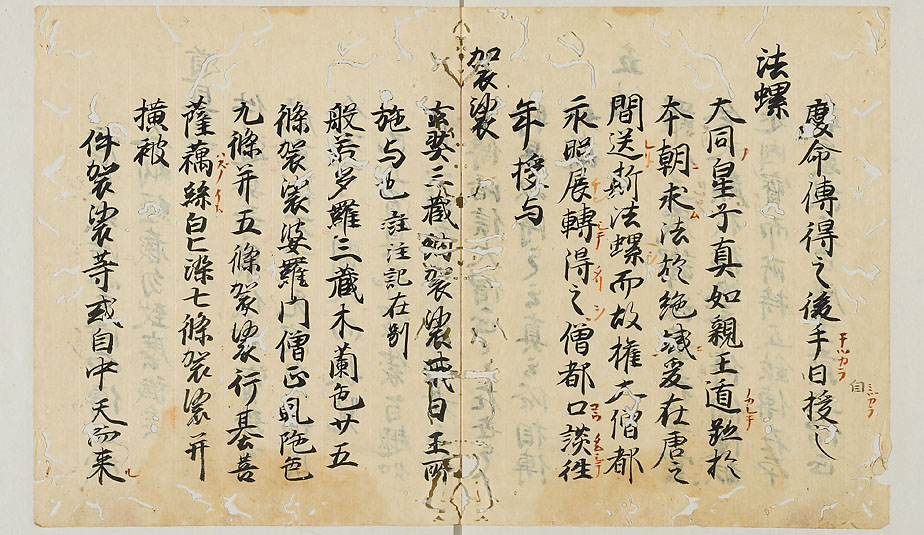 慶命傳得之後手日授之
自
法螺
大同皇子真如親王道跡於
本朝求法於絶域爰在唐之
間送斯法螺而故權大僧都
永照展轉得之僧都口談往
年授与
袈裟
玄奘三蔵納袈裟戒日王所
施与也 註注記在別
般若多羅三蔵木蘭色廿五
條袈裟婆羅門僧正乹陀色
九條并五條袈裟行基菩
薩藕絲白色染七條袈裟并
横被
件袈裟等或自中天而来